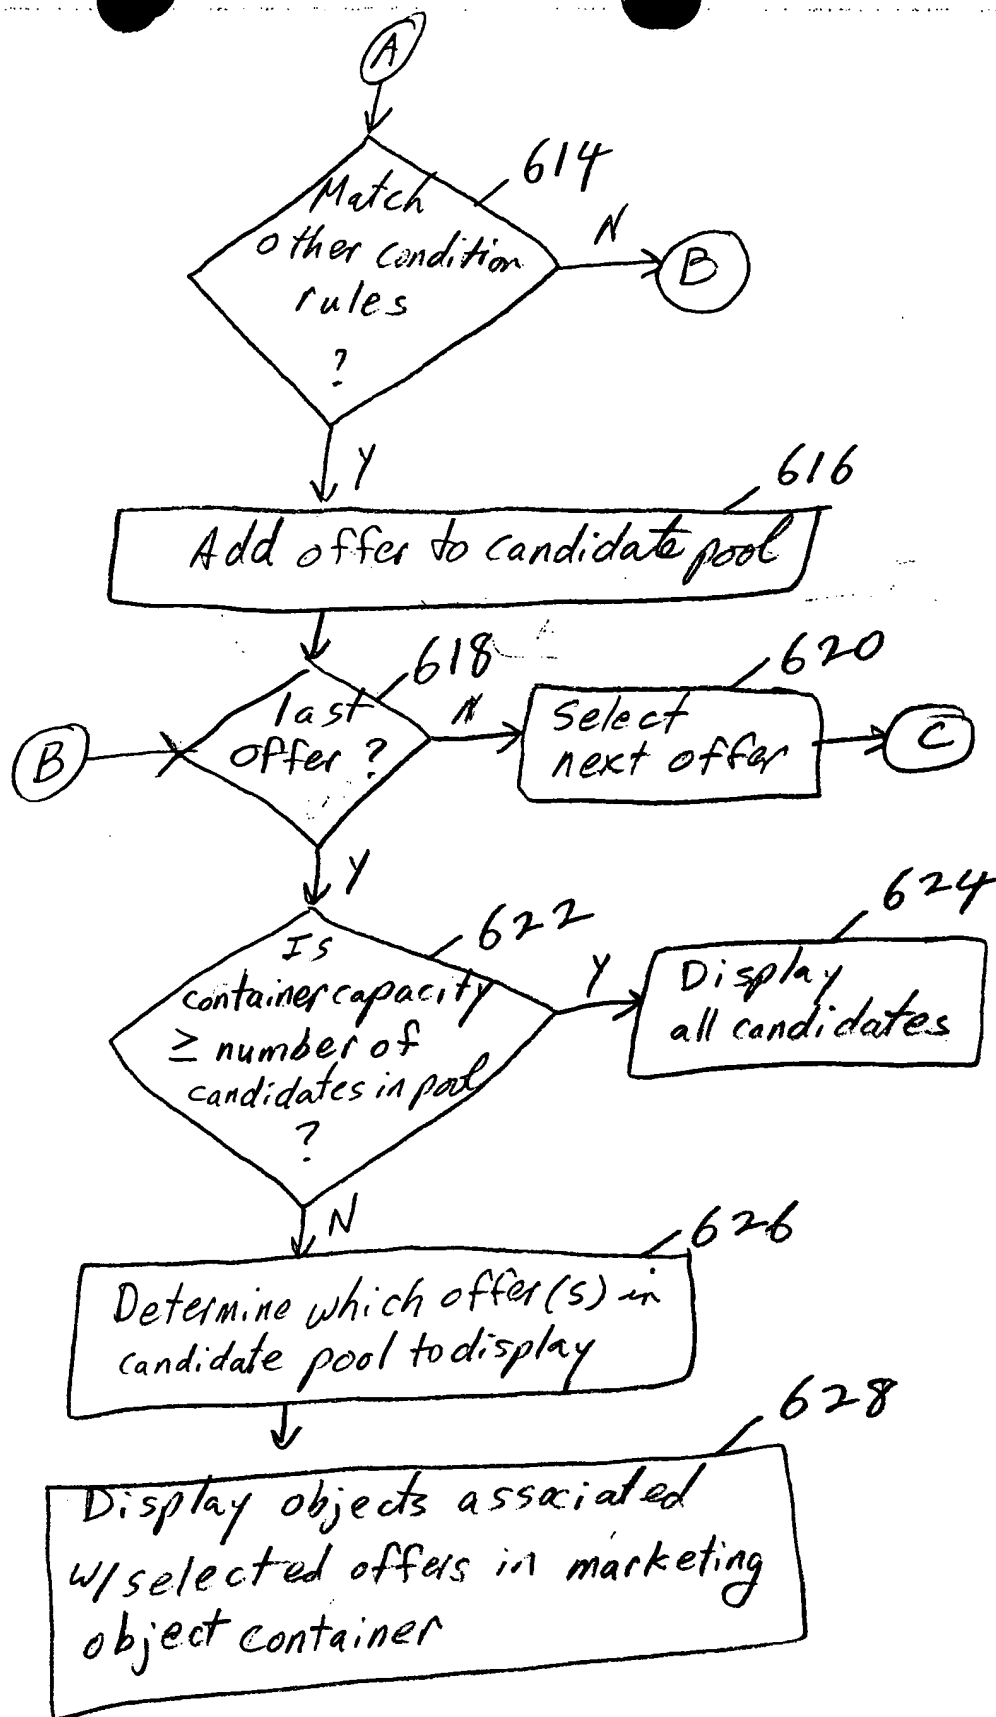 A
614
Match
other condition
rules
?
N
B
Y
616
Add offer to candidate pool
618
620
last
offer ?
N
Select
next offer
C
B
Y
622
624
Is
container capacity
≥ number of
candidates in pool
?
Y
Display
all candidates
N
626
Determine which offer(s) in
candidate pool to display
628
Display objects associated
w/ selected offers in marketing
object container